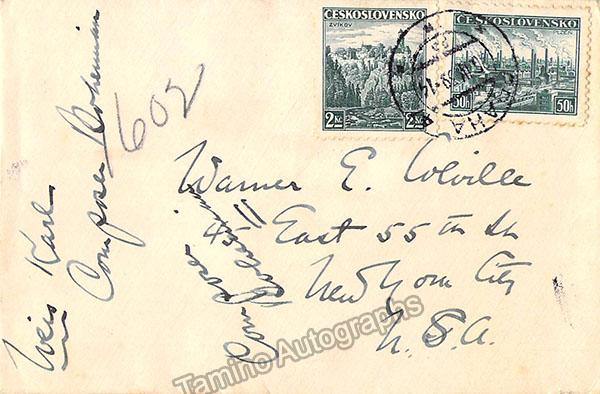 ČESKOSLOVENSKO
ZVÍKOV
2 Kč
ČESKOSLOVENSKO
50h
50h
PRAHA
602
Warner E. Colville
45 East 55th St
New York City
U.S.A.
Weis Karl
Composer Bohemian
Tamino Autographs